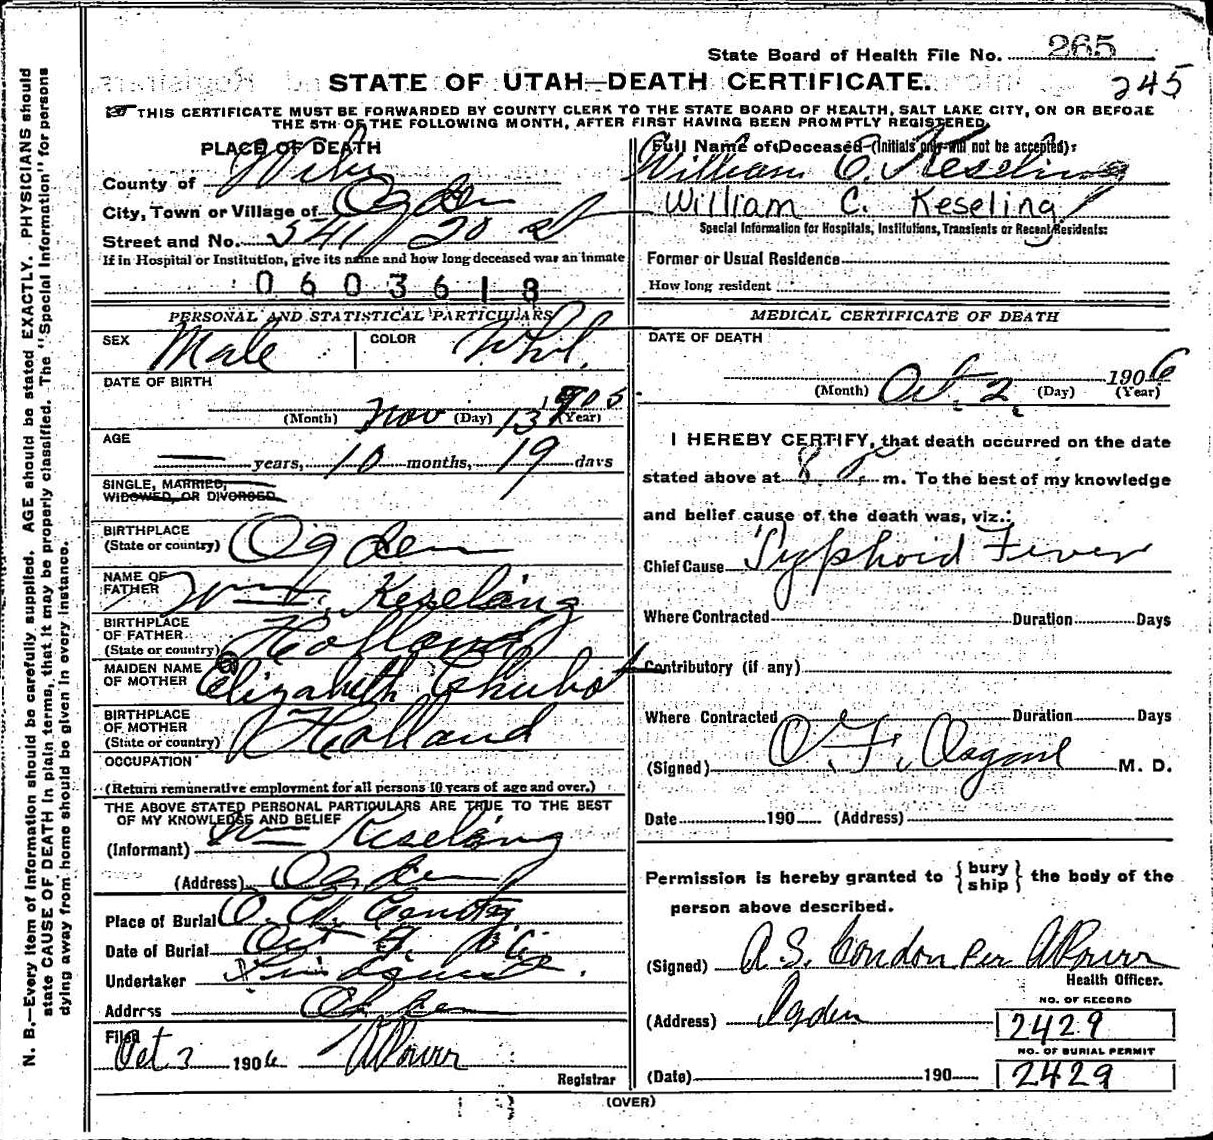 State Board of Health File No. 265
STATE OF UTAH—DEATH CERTIFICATE.
245
THIS CERTIFICATE MUST BE FORWARDED BY COUNTY CLERK TO THE STATE BOARD OF HEALTH, SALT LAKE CITY, ON OR BEFORE
THE 5TH OF THE FOLLOWING MONTH, AFTER FIRST HAVING BEEN PROMPTLY REGISTERED.
PLACE OF DEATH
County of Weber
City, Town or Village of Ogden
Street and No. 541 20 St
If in Hospital or Institution, give its name and how long deceased was an inmate
0603618
Full Name of Deceased (Initials only will not be accepted):
William C. Keseling
William C. Keseling
Special Information for Hospitals, Institutions, Transients or Recent Residents:
Former or Usual Residence
How long resident
PERSONAL AND STATISTICAL PARTICULARS
SEX Male COLOR Wht.
DATE OF BIRTH
(Month) Nov (Day) 13 1905 (Year)
AGE
— years, 10 months, 19 days
SINGLE, MARRIED,
WIDOWED, OR DIVORCED
BIRTHPLACE
(State or country) Ogden
NAME OF
FATHER Wm. Keseling
BIRTHPLACE
OF FATHER
(State or country) Holland
MAIDEN NAME
OF MOTHER Elizabeth
BIRTHPLACE
OF MOTHER
(State or country) Holland
OCCUPATION
(Return remunerative employment for all persons 10 years of age and over.)
THE ABOVE STATED PERSONAL PARTICULARS ARE TRUE TO THE BEST
OF MY KNOWLEDGE AND BELIEF
(Informant) Wm Keseling
(Address) Ogden
Place of Burial O. C. Cemetery
Date of Burial Oct 4. 06
Undertaker Lindquist
Address Ogden
Filed
Oct 3 1906
Registrar
MEDICAL CERTIFICATE OF DEATH
DATE OF DEATH
(Month) Oct. 2, (Day) 1906 (Year)
I HEREBY CERTIFY, that death occurred on the date
stated above at 8 p. m. To the best of my knowledge
and belief cause of the death was, viz.:
Chief Cause Typhoid Fever
Where Contracted Duration Days
Contributory (if any)
Where Contracted Duration Days
(Signed) O. F. Osgood M. D.
Date 190 (Address)
Permission is hereby granted to {bury ship} the body of the
person above described.
(Signed) A.S. Condon Per
Health Officer.
(Address) Ogden
NO. OF RECORD
2429
NO. OF BURIAL PERMIT
2429
(Date) 190
(OVER)
N. B.—Every item of information should be carefully supplied. AGE should be stated EXACTLY. PHYSICIANS should
state CAUSE OF DEATH in plain terms, that it may be properly classified. The "Special Information" for persons
dying away from home should be given in every instance.